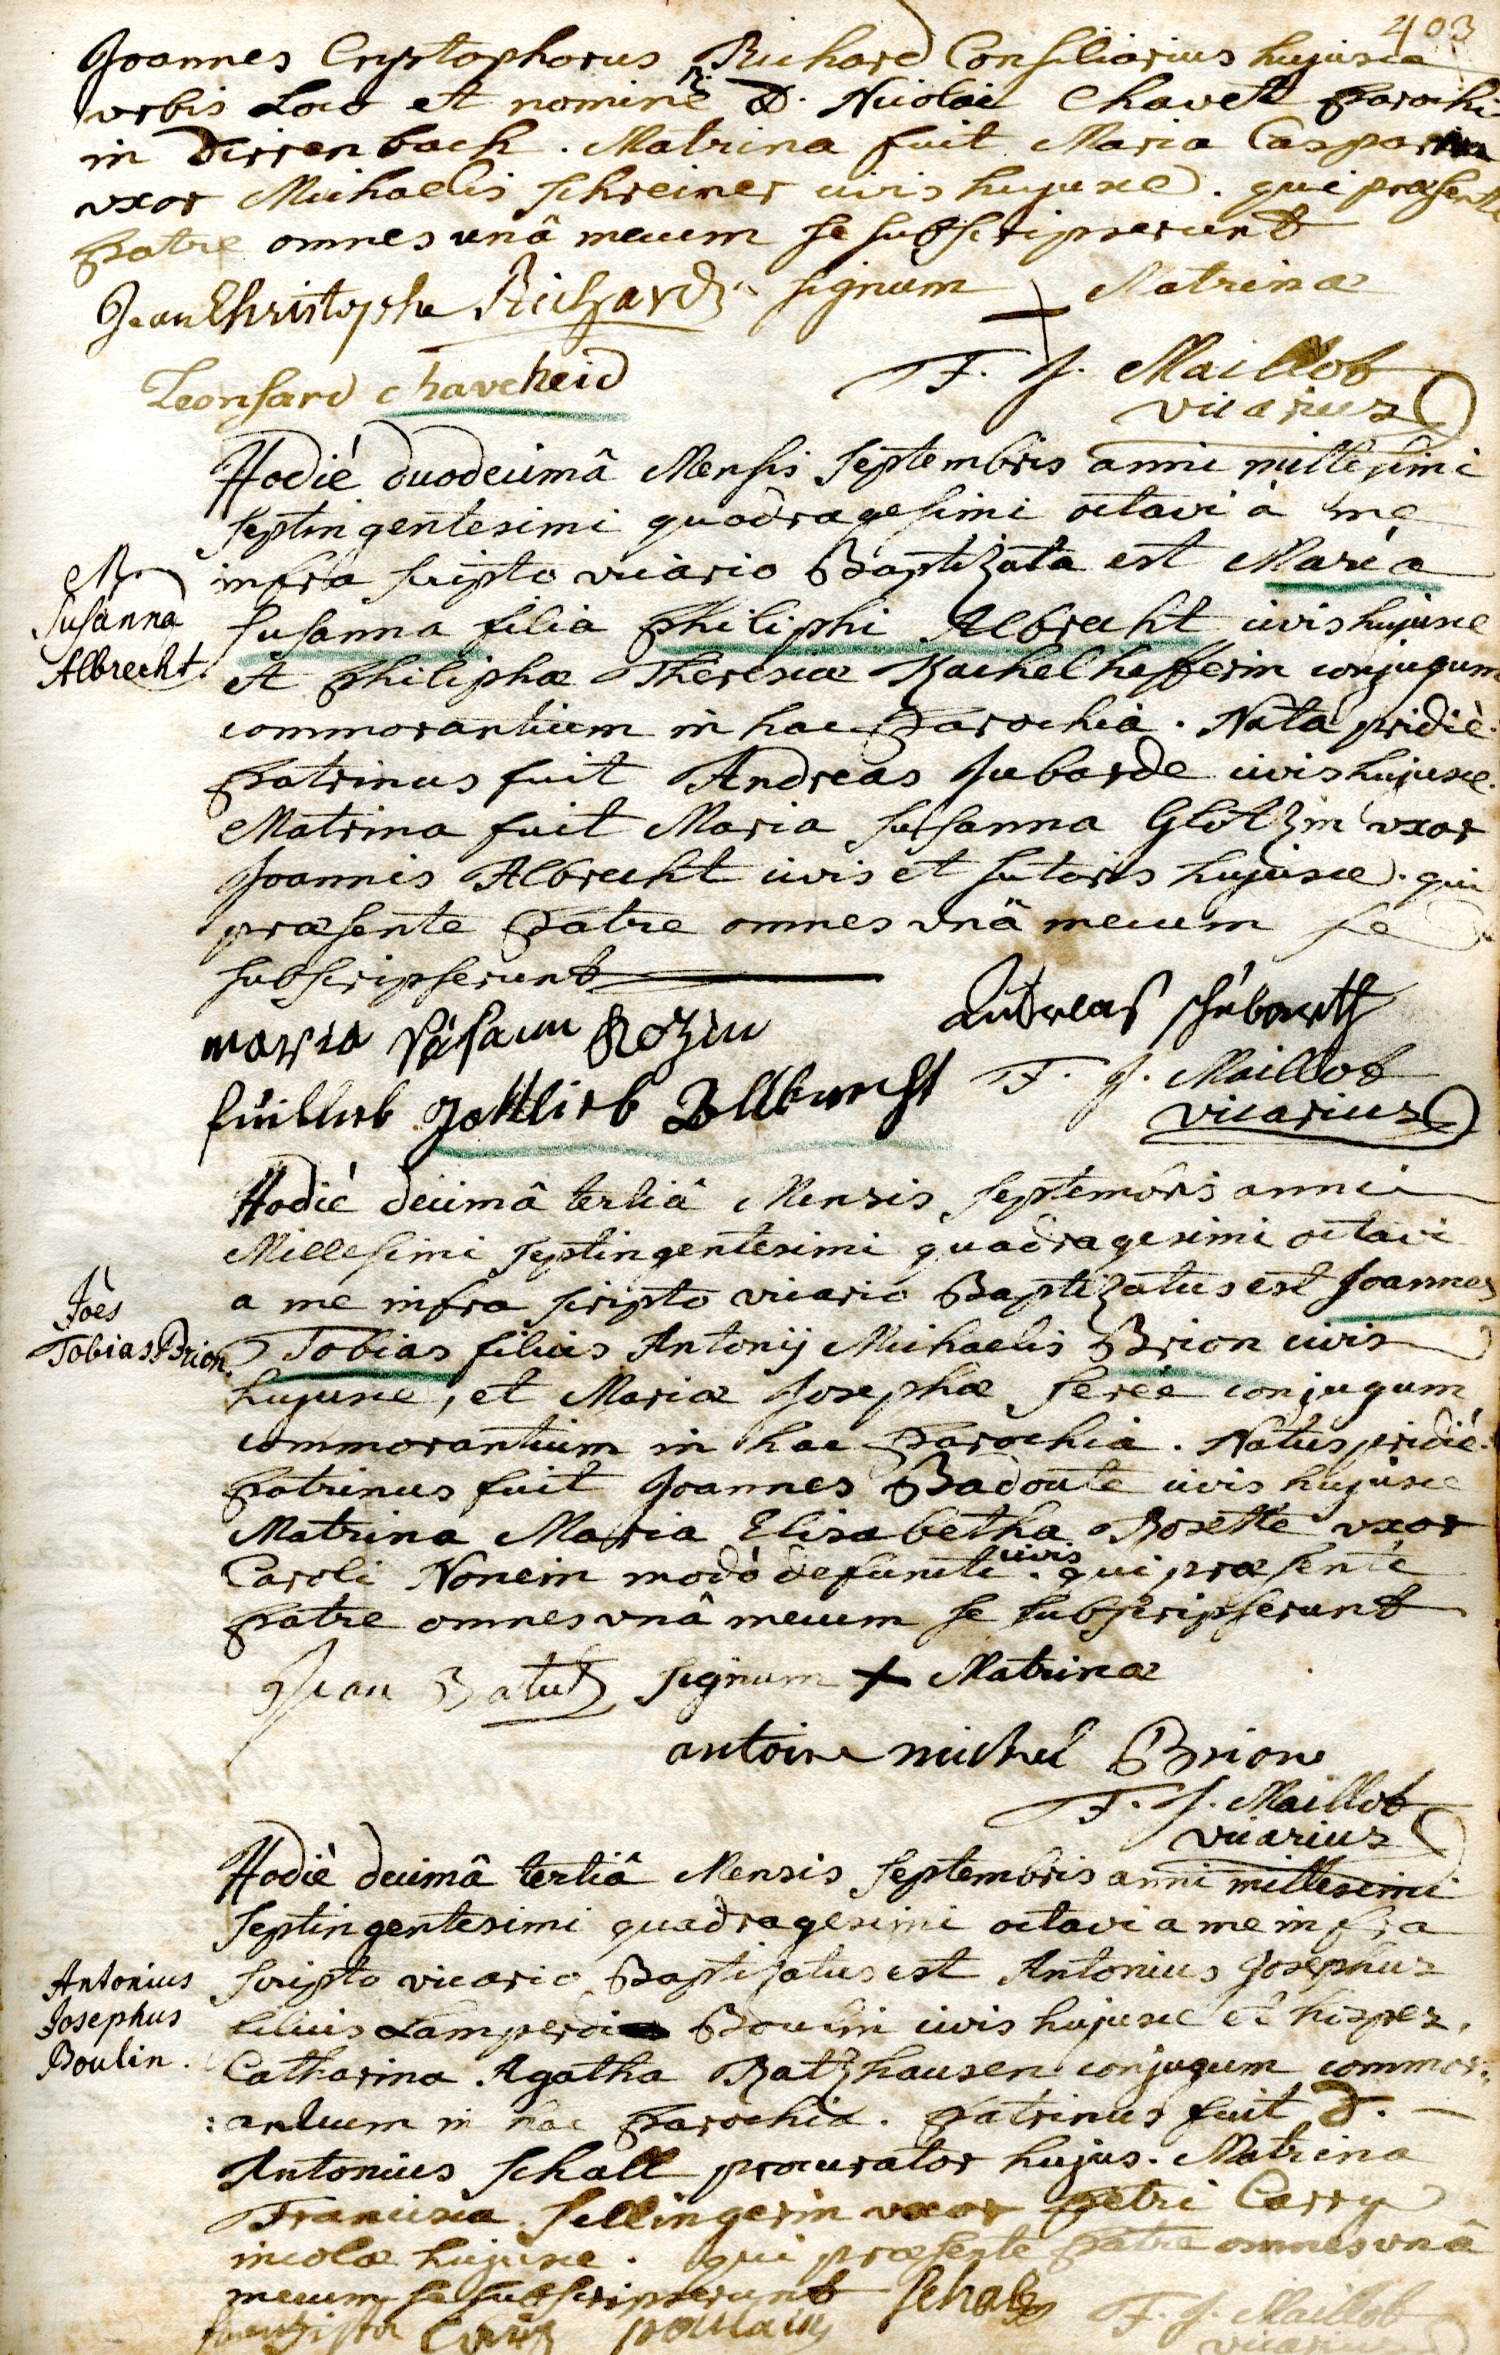 403
Joannes Cryptophorus Richard Consiliarius hujusce
urbis Loco et nomine R. D. Nicolai Chavet Parochi
in Dirrenbach. Matrina fuit Maria Casparin
uxor Michaelis Schreiner civis hujusce. qui præsente
Patre omnes unâ mecum se subscripserunt
Jean Christophe Richard signum Matrinæ
Leonhard Chaveheid F. J. Maillot
vicarius
Hodiè duodecimâ Mensis Septembris anni millesimi
septingentesimi quadragesimi octavi à me
infra scripto vicario Baptizata est Maria
Susanna filia Philiphi Albrecht civis hujusce
et Philiphæ Theresiæ Kachelhefferin conjugum
commorantium in hac Parochiâ. Nata pridiè.
Patrinus fuit Andreas Jubarde civis hujusce.
Matrina fuit Maria Susanna Glotzin uxor
Joannis Albrecht civis et sutoris hujusce. qui
præsente Patre omnes unâ mecum se
subscripserunt
M.
Susanna
Albrecht.
maria
Andreas Schubarth
F. J. Maillot
gottlieb
vicarius
Hodiè decimâ tertiâ Mensis Septembris anni
Millesimi septingentesimi quadragesimi octavi
a me infra scripto vicario Baptizatus est Joannes
Tobias filius Antonij Michaelis Brion civis
hujusce, et Mariæ Josephæ Feréé conjugum
commorantium in hac Parochiâ. Natus pridiè.
Patrinus fuit Joannes Badoute civis hujusce
Matrina Maria Elisabetha Rosette uxor
Caroli Nonein modò defuncti civis. qui præsente
Patre omnes unâ mecum se subscripserunt
Joës
Tobias Brion
Jean Batutz signum + Matrinæ
antoine michel Brion
F. J. Maillot
vicarius
Hodiè decimâ tertiâ Mensis Septembris anni millesimi
septingentesimi quadragesimi octavi a me infra
scripto vicario Baptizatus est Antonius Josephus
filius Lamperdi Boulin civis hujusce et hospes.
Catharina Agatha Ratzhausen conjugum commor:
:antium in hac Parochiâ. Patrinus fuit D.
Antonius Schall procurator hujus. Matrina
Francisca Sellingerin uxor Petri Carry
incolæ hujusce. qui præsente Patre omnes unâ
mecum se subscripserunt Schall
F. J. Maillot
vicarius
Antonius
Josephus
Boulin.